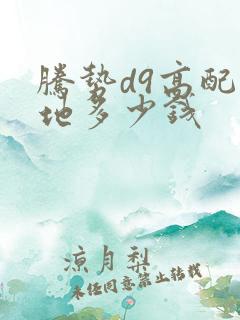 腾势d9高配落
地多少钱
凉月梨
未经同意禁止转载